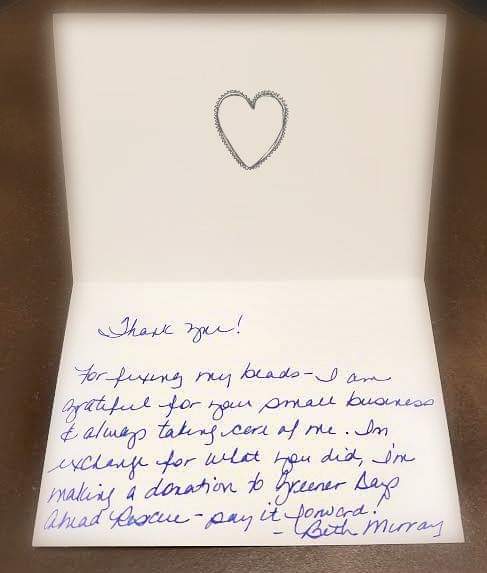 Thank you!
For fixing my beads - I am
grateful for your small business
& always taking care of me. In
exchange for what you did, I'm
making a donation to Greener Days
Ahead Rescue - pay it forward!
- Beth Murray